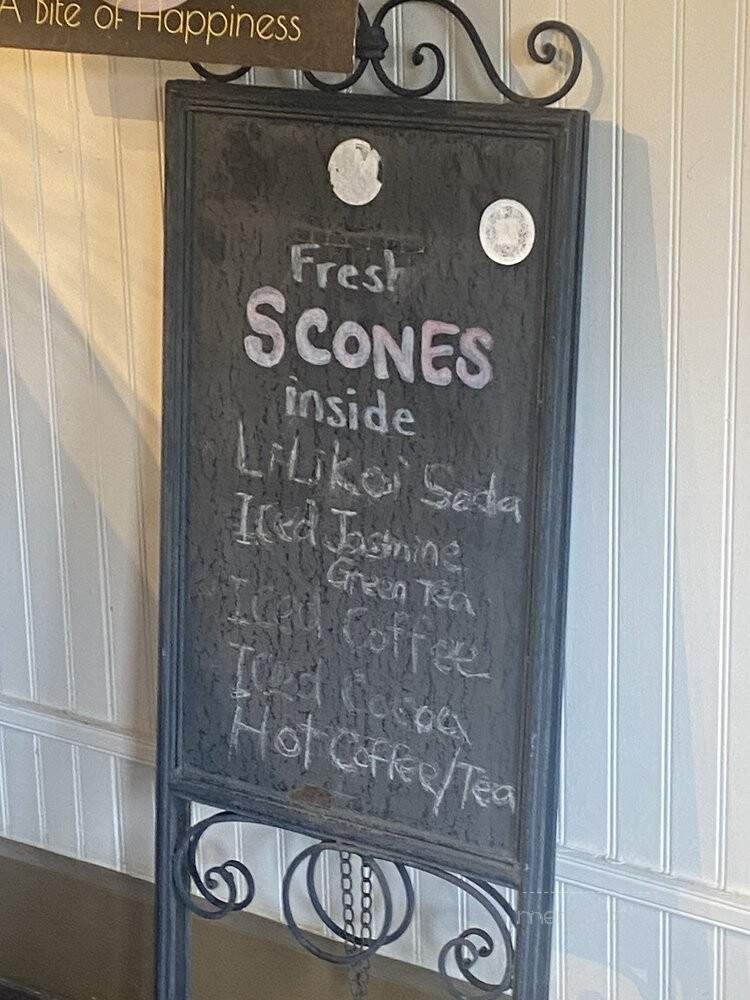 A Bite of Happiness
Fresh
SCONES
inside
LiLiKoi Soda
Iced Jasmine
Green Tea
Iced Coffee
Iced Cocoa
Hot Coffee/Tea